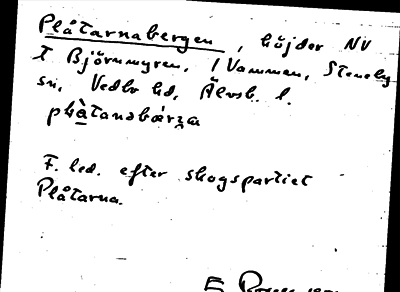 Plåtarnabergen, höjder NV
t Björnmyren, i Vammen, Steneby
sn, Vedbo hd, Älvsb. l.
F. led. efter skogspartiet
Plåtarna.